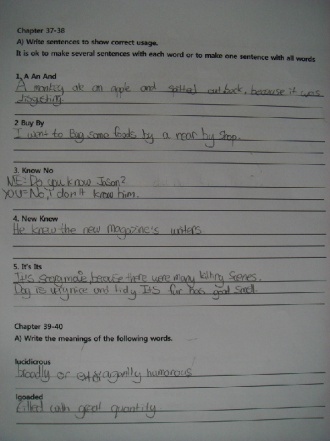 Chapter 37-38
A) Write sentences to show correct usage.
It is ok to make several sentences with each word or to make one sentence with all words
1. A An And
A monkey ate an apple and spitted out back, because it was
disgusting.
2 Buy By
I want to Buy some foods by a near by shop.
3. Know No
ME: Do you know Jason?
YOU: No, I don't know him.
4. New Knew
He knew the new magazine's writers
5. It's Its
It's because there were many killing scenes.
Dog is very nice and tidy Its fur has good smell.
Chapter 39-40
A) Write the meanings of the following words.
lucidicrous
broadly or humorous
ignaded
with great quantity.